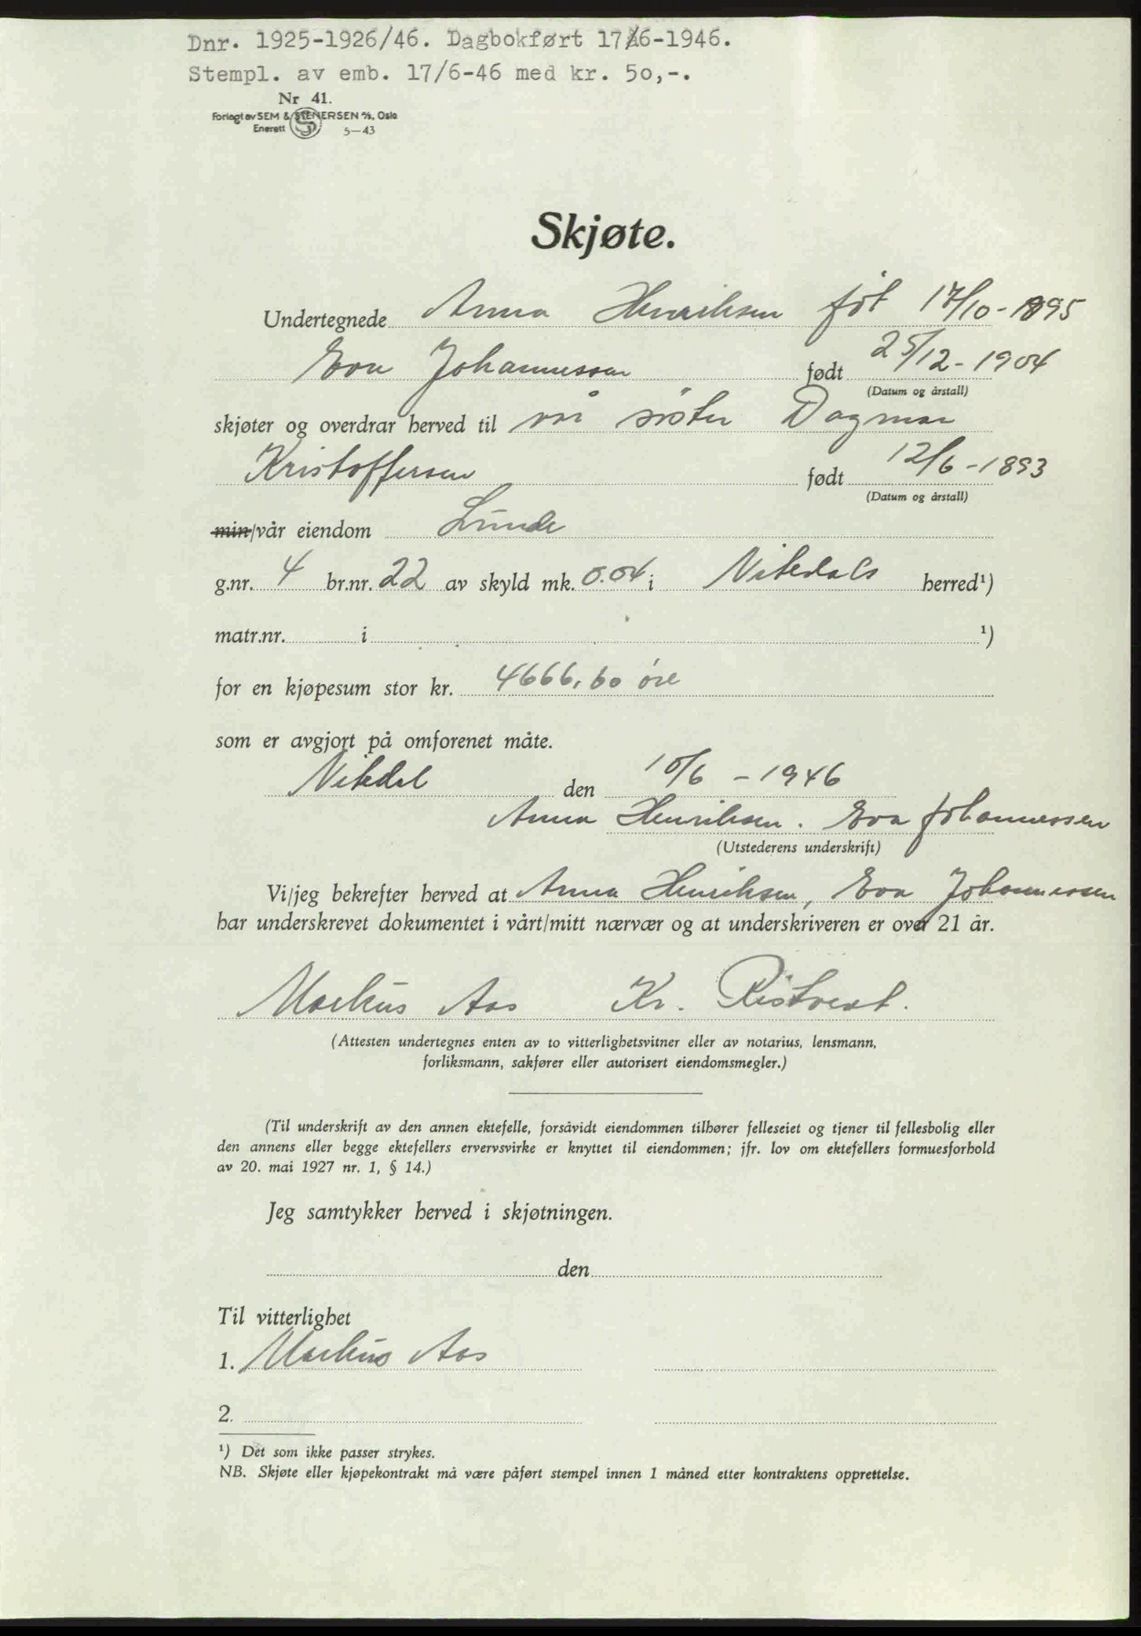 Dnr. 1925-1926/46. Dagbokført 17/6-1946.
Stempl. av emb. 17/6-46 med kr. 50,-.
Nr 41.
Forlagt av SEM & STENERSEN A/S, Oslo
Enerett 5—43
Skjøte.
Undertegnede Anna Henriksen føt 17/10-1895
Eva Johannessen født 25/12-1904
(Datum og årstall)
skjøter og overdrar herved til vår søster Dagmar
Kristoffersen født 12/6-1893
(Datum og årstall)
min/vår eiendom Lunde
g.nr. 4 br.nr. 22 av skyld mk. 0.04 i Nitedals herred¹)
matr.nr. i ¹)
for en kjøpesum stor kr. 4666,60 øre
som er avgjort på omforenet måte.
Nitedal den 10/6 - 1946
Anna Henriksen. Eva Johannessen
(Utstederens underskrift)
Vi/jeg bekrefter herved at Anna Henriksen, Eva Johannessen
har underskrevet dokumentet i vårt/mitt nærvær og at underskriveren er over 21 år.
Markus Aas Kr.
(Attesten undertegnes enten av to vitterlighetsvitner eller av notarius, lensmann,
forliksmann, sakfører eller autorisert eiendomsmegler.)
(Til underskrift av den annen ektefelle, forsåvidt eiendommen tilhører felleseiet og tjener til fellesbolig eller
den annens eller begge ektefellers ervervsvirke er knyttet til eiendommen; jfr. lov om ektefellers formuesforhold
av 20. mai 1927 nr. 1, § 14.)
Jeg samtykker herved i skjøtningen.
den
Til vitterlighet
1. Markus Aas
2.
¹) Det som ikke passer strykes.
NB. Skjøte eller kjøpekontrakt må være påført stempel innen 1 måned etter kontraktens opprettelse.